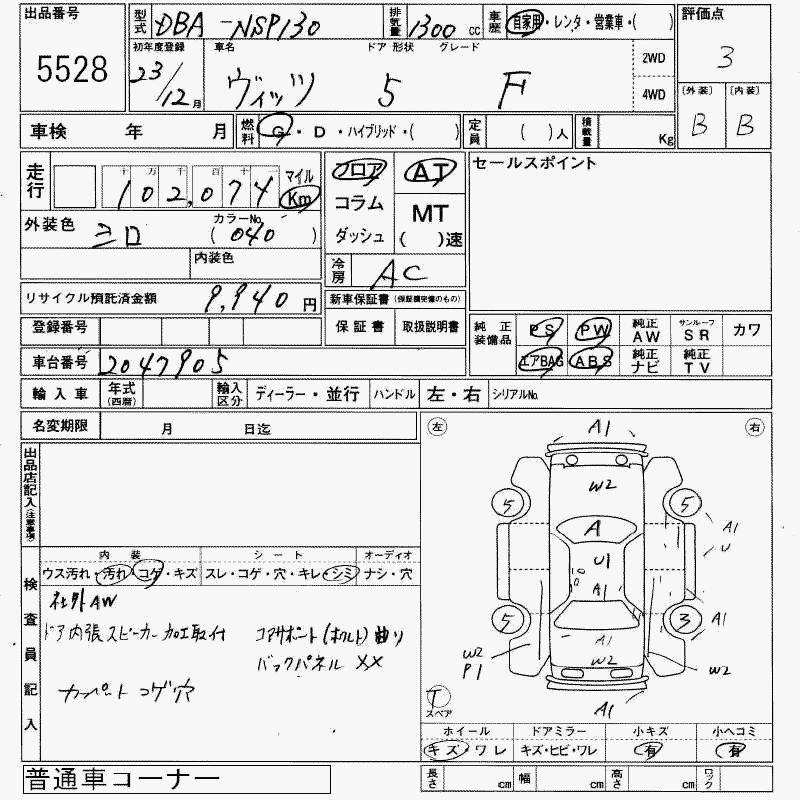 出品番号 5528
型式 DBA-NSP130 排気量 1300 cc 車歴 自家用・レンタ・営業車・( )
評価点 3
初年度登録 23/12月 車名 ヴィッツ ドア 形状 5 グレード F 2WD 4WD
〔外装〕 B 〔内装〕 B
車検 年 月 燃料 G・D・ハイブリッド・( ) 定員 ( )人 積載量 Kg
走行 十万千百十一 102,074 マイル Km
フロア AT
コラム MT
ダッシュ ( )速
セールスポイント
外装色 シロ カラーNo. (040)
内装色
冷房 AC
リサイクル預託済金額 9,940 円
新車保証書(保証継続完備のもの)
保証書 取扱説明書
登録番号
純正装備品 PS PW 純正AW サンルーフSR カワ
エアBAG ABS 純正ナビ 純正TV
車台番号 2047905
輸入車 年式(西暦) 輸入区分 ディーラー・並行 ハンドル 左・右 シリアルNo.
名変期限 月 日迄
左 右
出品店記入(注意事項)
A1
W2
5 5
A
A1
U
U1
A1
5 3
A1
A1
W2
P1
W2
W2
A1
T
スペア
検査員記入
内装 シート オーディオ
ウス汚れ・汚れ・コゲ・キズ スレ・コゲ・穴・キレ・シミ ナシ・穴
社外AW
ドア内張スピーカー加工取付 コアサポート(ホルト)曲り
バックパネル XX
カーペット コゲ穴
ホイール ドアミラー 小キズ 小ヘコミ
キズ・ワレ キズ・ヒビ・ワレ 有 有
普通車コーナー
長さ cm 幅 cm 高さ cm ロック